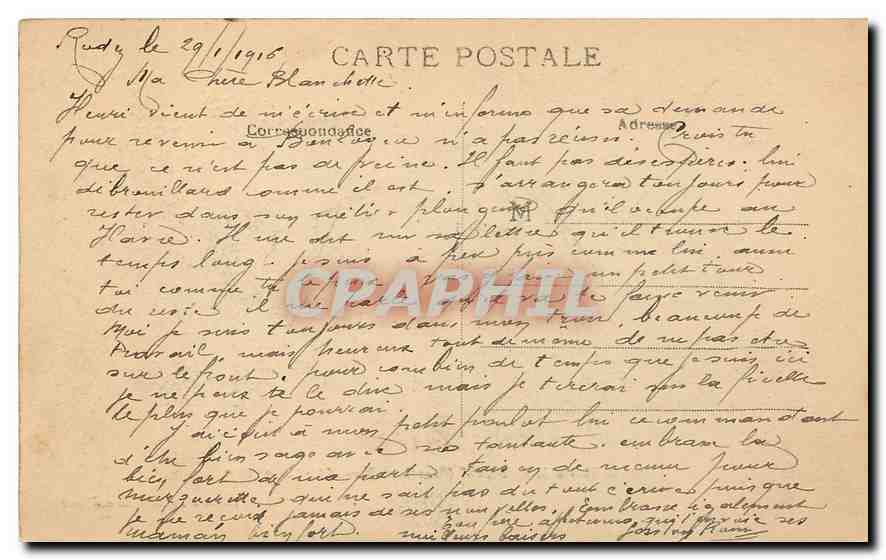 le 29/1/1916
CARTE POSTALE
Ma chère Blanchette.
Henri vient de m'écrire et m'informe que sa demande
Correspondance
Adresse
pour revenir à Boulogne n'a pas réussi. Crois tu
que ce n'est pas de veine. Il faut pas désespérer. lui
débrouillard comme il est. s'arrangera toujours pour
rester dans son métier plongeur qu'il occupe au
M
Havre. Il me dit sur sa lettre qu'il trouve le
temps long. je suis à peu près comme lui. aussi
toi comme tu un petit tour
CPAPHIL
du reste il me parle de faire venir.
Moi je suis toujours dans mon trou, beaucoup de
travail, mais heureux tout de même de ne pas être
sur le front. pour combien de temps que je suis ici
je ne peux te le dire mais je tirerai sur la ficelle
le plus que je pourrai.
J'ai écrit à mon petit poulot lui recommandant
d'être bien sage avec sa tantante. embrasse la
bien fort de ma part. de même pour
Marguerite qui ne sait pas du tout écrire puisque
je ne reçois jamais de ses nouvelles. Embrasse également
maman bien fort. ton père qui t'envoie ses
meilleurs baisers